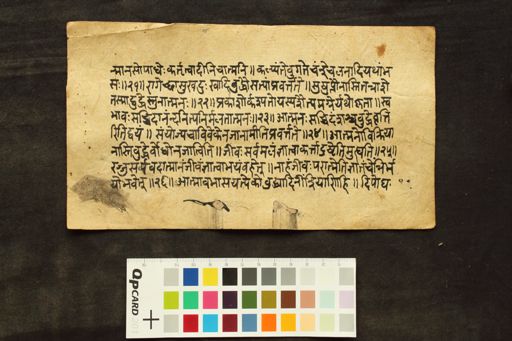 त्मानसोपाधेः कर्तृत्वादीनिचात्मनि॥ कल्प्यंतेंवुगतेचंद्रेचलनादियथांभ
सः॥२१॥रागेच्छासुखदुःखादिबुद्धौसत्यांप्रवर्त्तते॥सुषुप्तौनास्तितन्नाशे
तस्माद्बुद्धेस्तुनात्मनः॥२२॥प्रकाशोर्कस्यतोयस्यशैत्यमग्नेर्यथोष्णता॥स्व
भावःसच्चिदानंदनित्यनिर्मलतात्मनः॥२३॥आत्मनःसच्चिदंशश्चबुद्धेर्वृत्ति
रितिद्वयं॥संयोज्यचाविवेकेनजानामीतिप्रवर्त्तते॥२४॥आत्मनोविक्रिया
नास्तिबुद्धेर्बोधोनजात्विति॥जीवःसर्वमलंज्ञात्वाकर्ताद्रष्टेतिमुह्यति॥२५॥
रज्जुसर्पवदात्मानंजीवंज्ञात्वाभयंवहेत्॥नाहंजीवःपरात्मेतिज्ञातश्चेन्निर्भ
योभवेत्॥२६॥आत्मावभासयत्येकोबुद्ध्यादीनींद्रियाणिहि॥दिपोघ
QPCARD 201